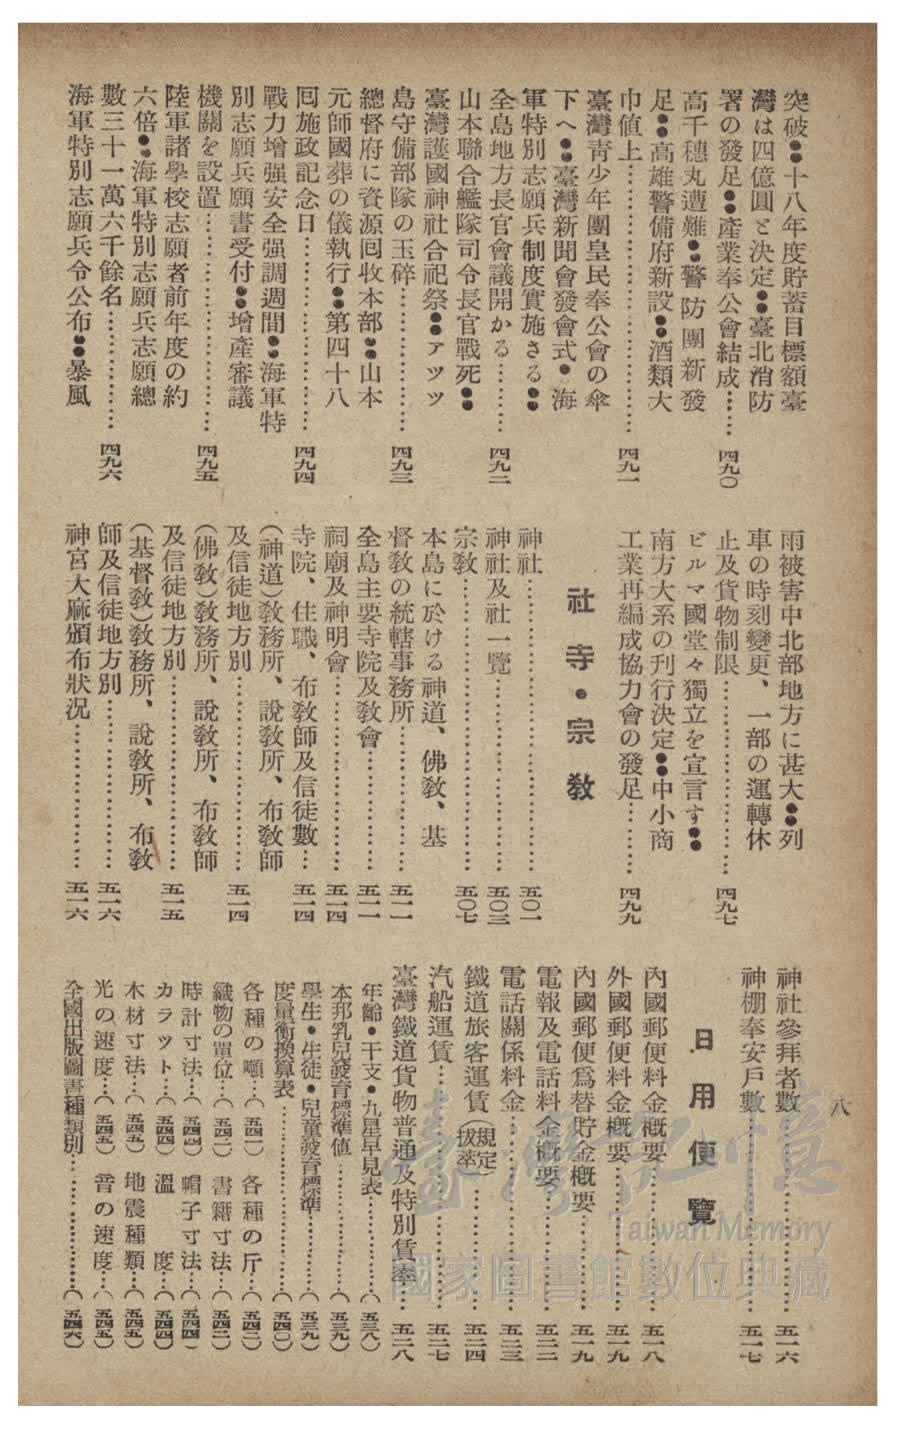 突破●●十八年度貯蓄目標額臺
灣は四億圓と決定●●臺北消防
署の發足●●產業奉公會結成……四九〇
高千穗丸遭難●●警防團新發
足●●高雄警備府新設●●酒類大
巾値上……四九一
臺灣靑少年團皇民奉公會の傘
下へ●●臺灣新聞會發會式●海
軍特別志願兵制度實施さる●●
全島地方長官會議開かる……四九二
山本聯合艦隊司令長官戰死●●
臺灣護國神社合祀祭●●アッツ
島守備部隊の玉碎……四九三
總督府に資源囘收本部●●山本
元師國葬の儀執行●●第四十八
囘施政記念日……四九四
戰力增强安全强調週間●●海軍特
別志願兵願書受付●●增產審議
機關を設置……四九五
陸軍諸學校志願者前年度の約
六倍●●海軍特別志願兵志願總
數三十一萬六千餘名……四九六
海軍特別志願兵令公布●●暴風
雨被害中北部地方に甚大●●列
車の時刻變更、一部の運轉休
止及貨物制限……四九七
ビルマ國堂々獨立を宣言す●●
南方大系の刊行決定●●中小商
工業再編成協力會の發足……四九九
社寺・宗敎
神社……五〇一
神社及社一覽……五〇三
宗敎……五〇七
本島に於ける神道、佛敎、基
督敎の統轄事務所……五一一
全島主要寺院及敎會……五一一
祠廟及神明會……五一四
寺院、住職、布敎師及信徒數…五一四
(神道)敎務所、說敎所、布敎師
及信徒地方別……五一四
(佛敎)敎務所、說敎所、布敎師
及信徒地方別……五一五
(基督敎)敎務所、說敎所、布敎
師及信徒地方別……五一六
神宮大麻頒布狀況……五一六
八
神社參拜者數……五一六
神棚奉安戶數……五一七
日用便覽
內國郵便料金槪要……五一八
外國郵便料金槪要……五一九
內國郵便爲替貯金槪要……五一九
電報及電話料金槪要……五二二
電話關係料金……五二三
鐵道旅客運賃(規定拔萃)……五二四
汽船運賃……五二七
臺灣鐵道貨物普通及特別賃率…五二八
年齡・干支・九星早見表……(五三八)
本邦乳兒發育標準値……(五三九)
學生・生徒・兒童發育標準……(五三九)
度量衡換算表……(五四〇)
各種の噸…(五四二) 各種の斤…(五四二)
織物の單位…(五四二) 書籍寸法…(五四二)
時計寸法…(五四四) 帽子寸法…(五四四)
カラット…(五四四) 溫度…(五四四)
木材寸法…(五四五) 地震種類…(五四五)
光の速度…(五四五) 音の速度…(五四五)
全國出版圖書種類別……(五四六)
臺灣記憶
Taiwan Memory
國家圖書館數位典藏